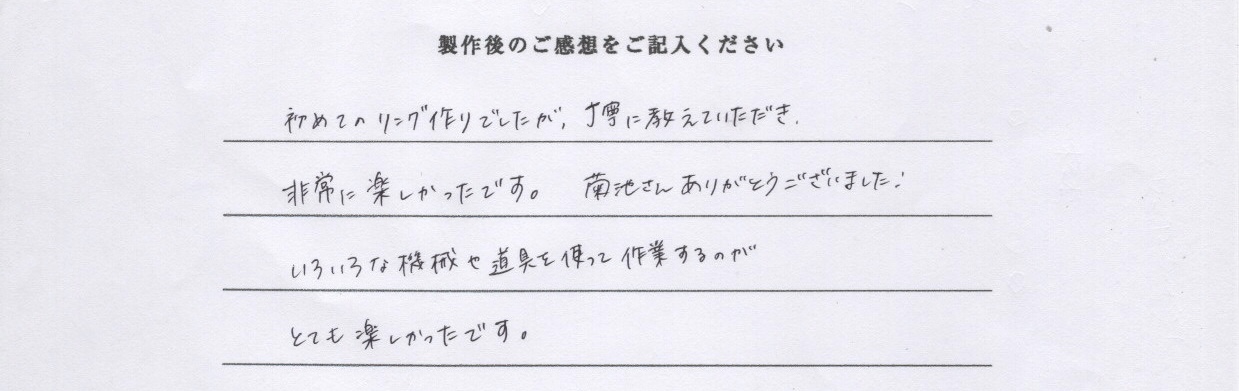 製作後のご感想をご記入ください
初めてのリング作りでしたが、丁寧に教えていただき、
非常に楽しかったです。 菊池さんありがとうございました!
いろいろな機械や道具を使って作業するのが
とても楽しかったです。